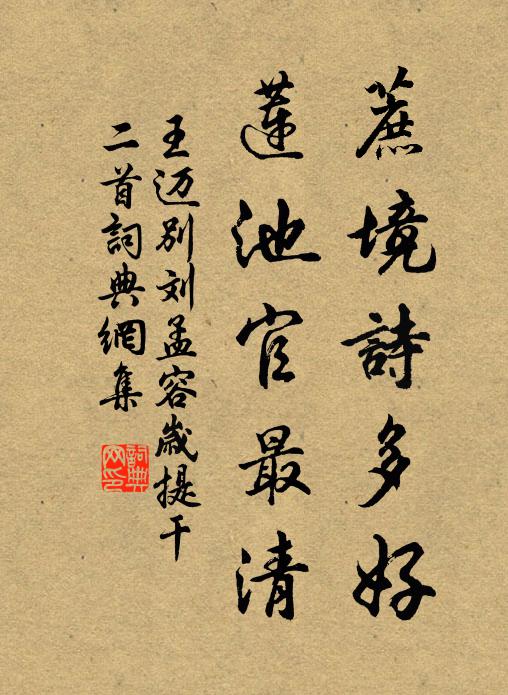 蔗境詩多好
蓮池官最清
王迈别刘孟容崴提干
二首詞典網集
詞典网印